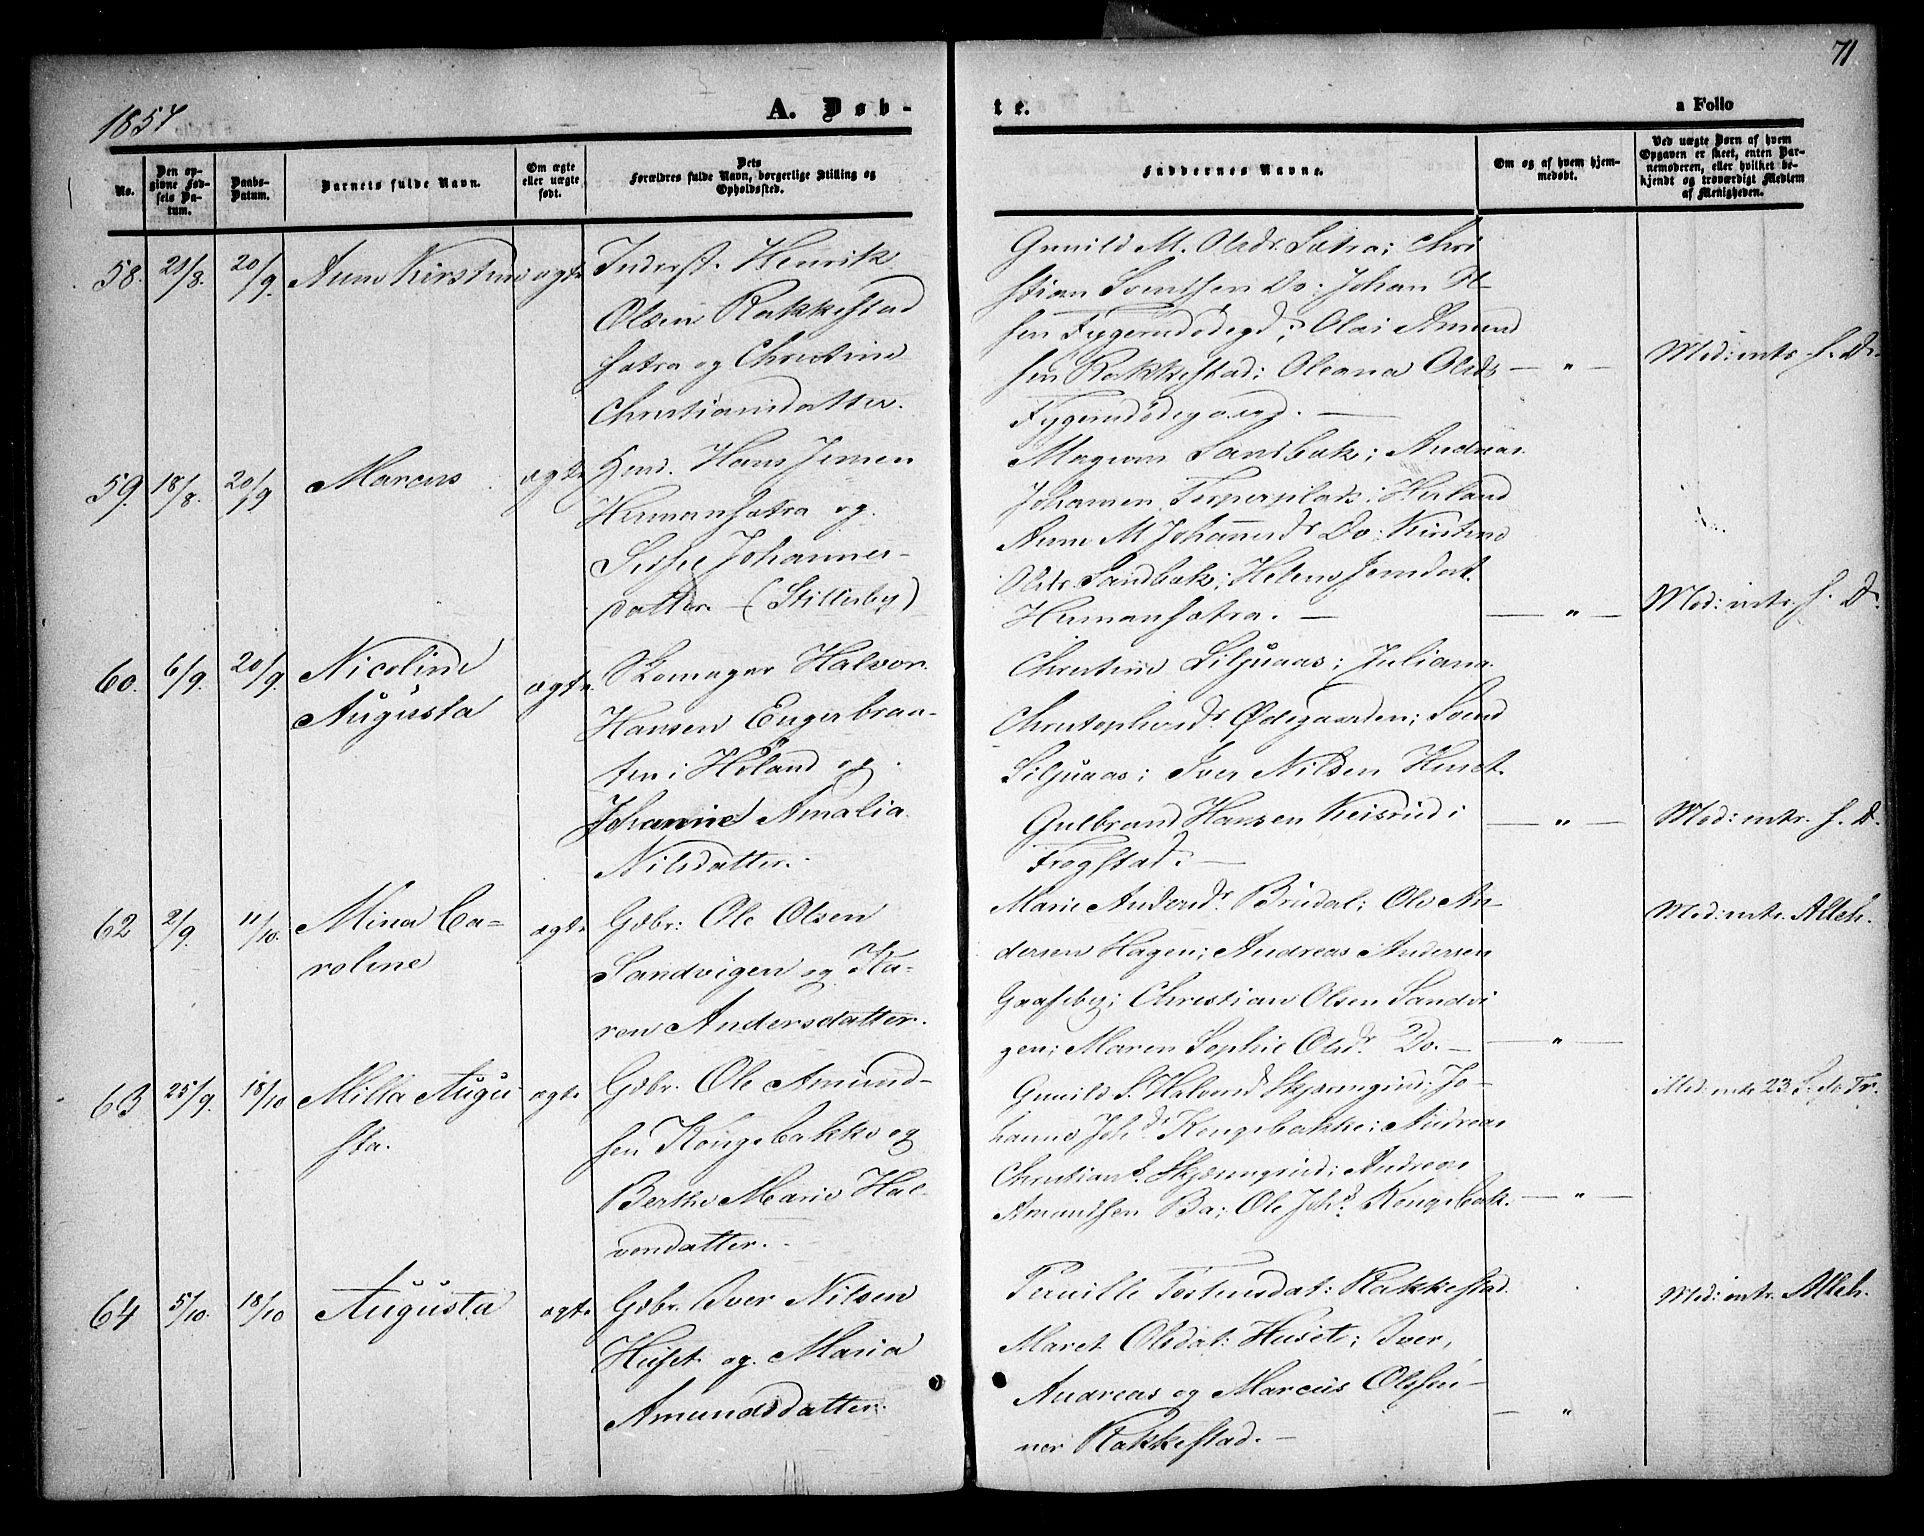 71
1857
A. Døb-
te.
a Follo
No.
Den op-
givne Fød-
sels Da-
tum.
Daabs-
Datum.
Barnets fulde Navn.
Om ægte
eller uægte
født.
Dets
Forældres fulde Navn, borgerlige Stilling og
Opholdssted.
Faddernes Navne.
Om og af hvem hjem-
medøbt.
Ved uægte Børn af hvem
Opgaven er skeet, enten Bar-
nemoderen, eller hvilket be-
kjendt og troværdigt Medlem
af Menigheden.
58. 21/8. 20/9. Anne Kirstine ægte
Inderst. Henrik
Olsen Rakkestad
sætra og Christine
Christiansdatter.
Gunild M. Olsdr. Sætra; Chri
stian Svendsen Do; Johan H-
sen Ødegd; Olai Amund
sen Rakkestad; Oleana Olsdr
— " —
Med: intr. f. D.
59. 18/8. 20/9 Marcus ægte
Husd. Hans Jensen
Hermansætra og
Sidse Johannes-
datter. — (Stitterby)
Magnus Sandbæk; Andreas
Johansen
Anne M Johannesdr Do; Kirstine
Olsdr Sandbæk; Helene Jensdat.
Hermansætra. —
— " —
Med: intr. f. D.
60. 6/9. 20/9. Nicoline
Augusta
ægte.
Skomager Halvor
Hansen Engerbraa-
ten i Høland og
Johanne Amalia
Nilsdatter.
Christine Liljuaas; Juliana
Christophersdr Ødegaarden; Svend
Liljuaas; Iver Nilsen Huset.
Gulbrand Hansen Keisrud i
Trøgstad. —
— " —
Med: intr. f. D.
62 2/9. 11/10. Mina Ca-
roline
ægte
Gdbr: Ole Olsen
Sandvigen og Ka-
ren Andersdatter.
Marie Andersdr. Brudal; Ole An-
dersen Hagen; Andreas Andersen
Graaseby; Christian Olsen Sandvi
gen; Maren Sophie Olsdr. Do. —
— " —
Med: intr. Alleh.
63 25/9. 18/10 Milla Augu
sta.
ægte
Gdbr. Ole Amund-
sen Kongebakke og
Berthe Marie Hal-
vorsdatter.
Gunild S. Halvorsd Skjærengrud; Jo-
hanne Johd. Kongebakke; Andreas
Christians. Skjærengrud; Andreas
Amundsen Bø; Ole Johs. Kongebak.
— " —
Med: intr. 23 S. e. Tr.
64 5/10. 18/10 Augusta ægte
Gdbr. Iver Nilsen
Huset og Maria
Amundsdatter.
Pernille Torstensdat: Rakkestad
Maret Olsdat: Huset; Iver,
Andreas og Marcus Olsøn-
ner Rakkestad. —
— "
Med: intr. Alleh.